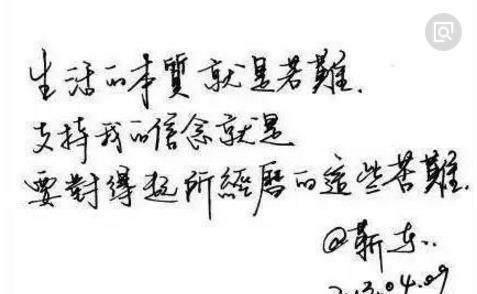 生活的本質就是苦難.
支持我的信念就是
要對得起所經曆的這些苦難.
@靳东..
2013.04.09